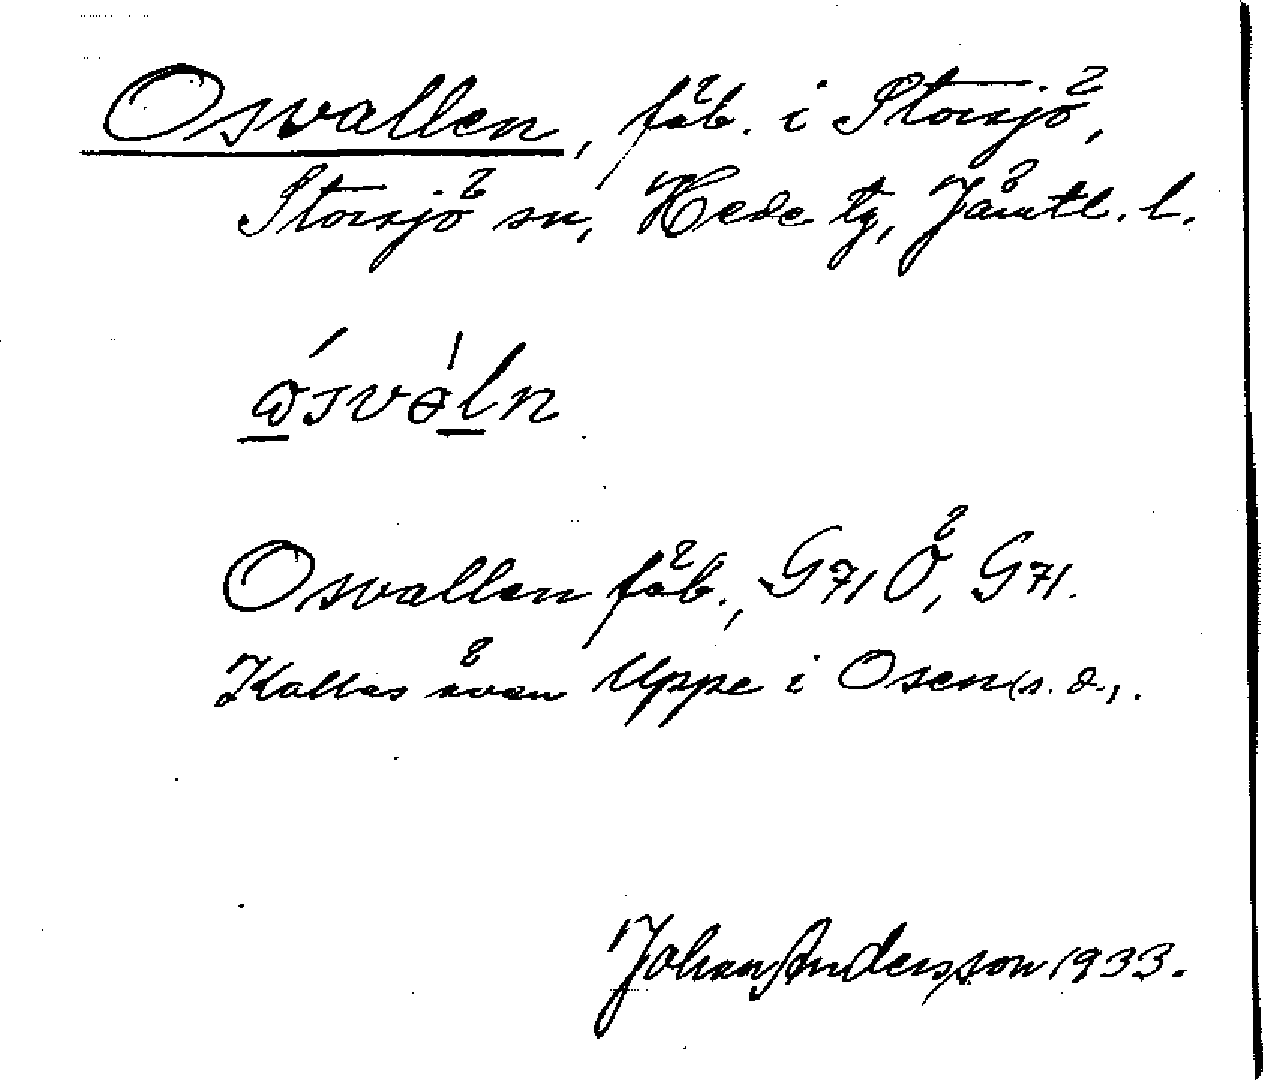 Osvallen, fäb. i Storsjö,
Storsjö sn, Hede tg, Jämtl. l.
Osvallen fäb., G71 Ö, G71.
Kallas även Uppe i Osen (s. d.).
Johan Andersson 1933.